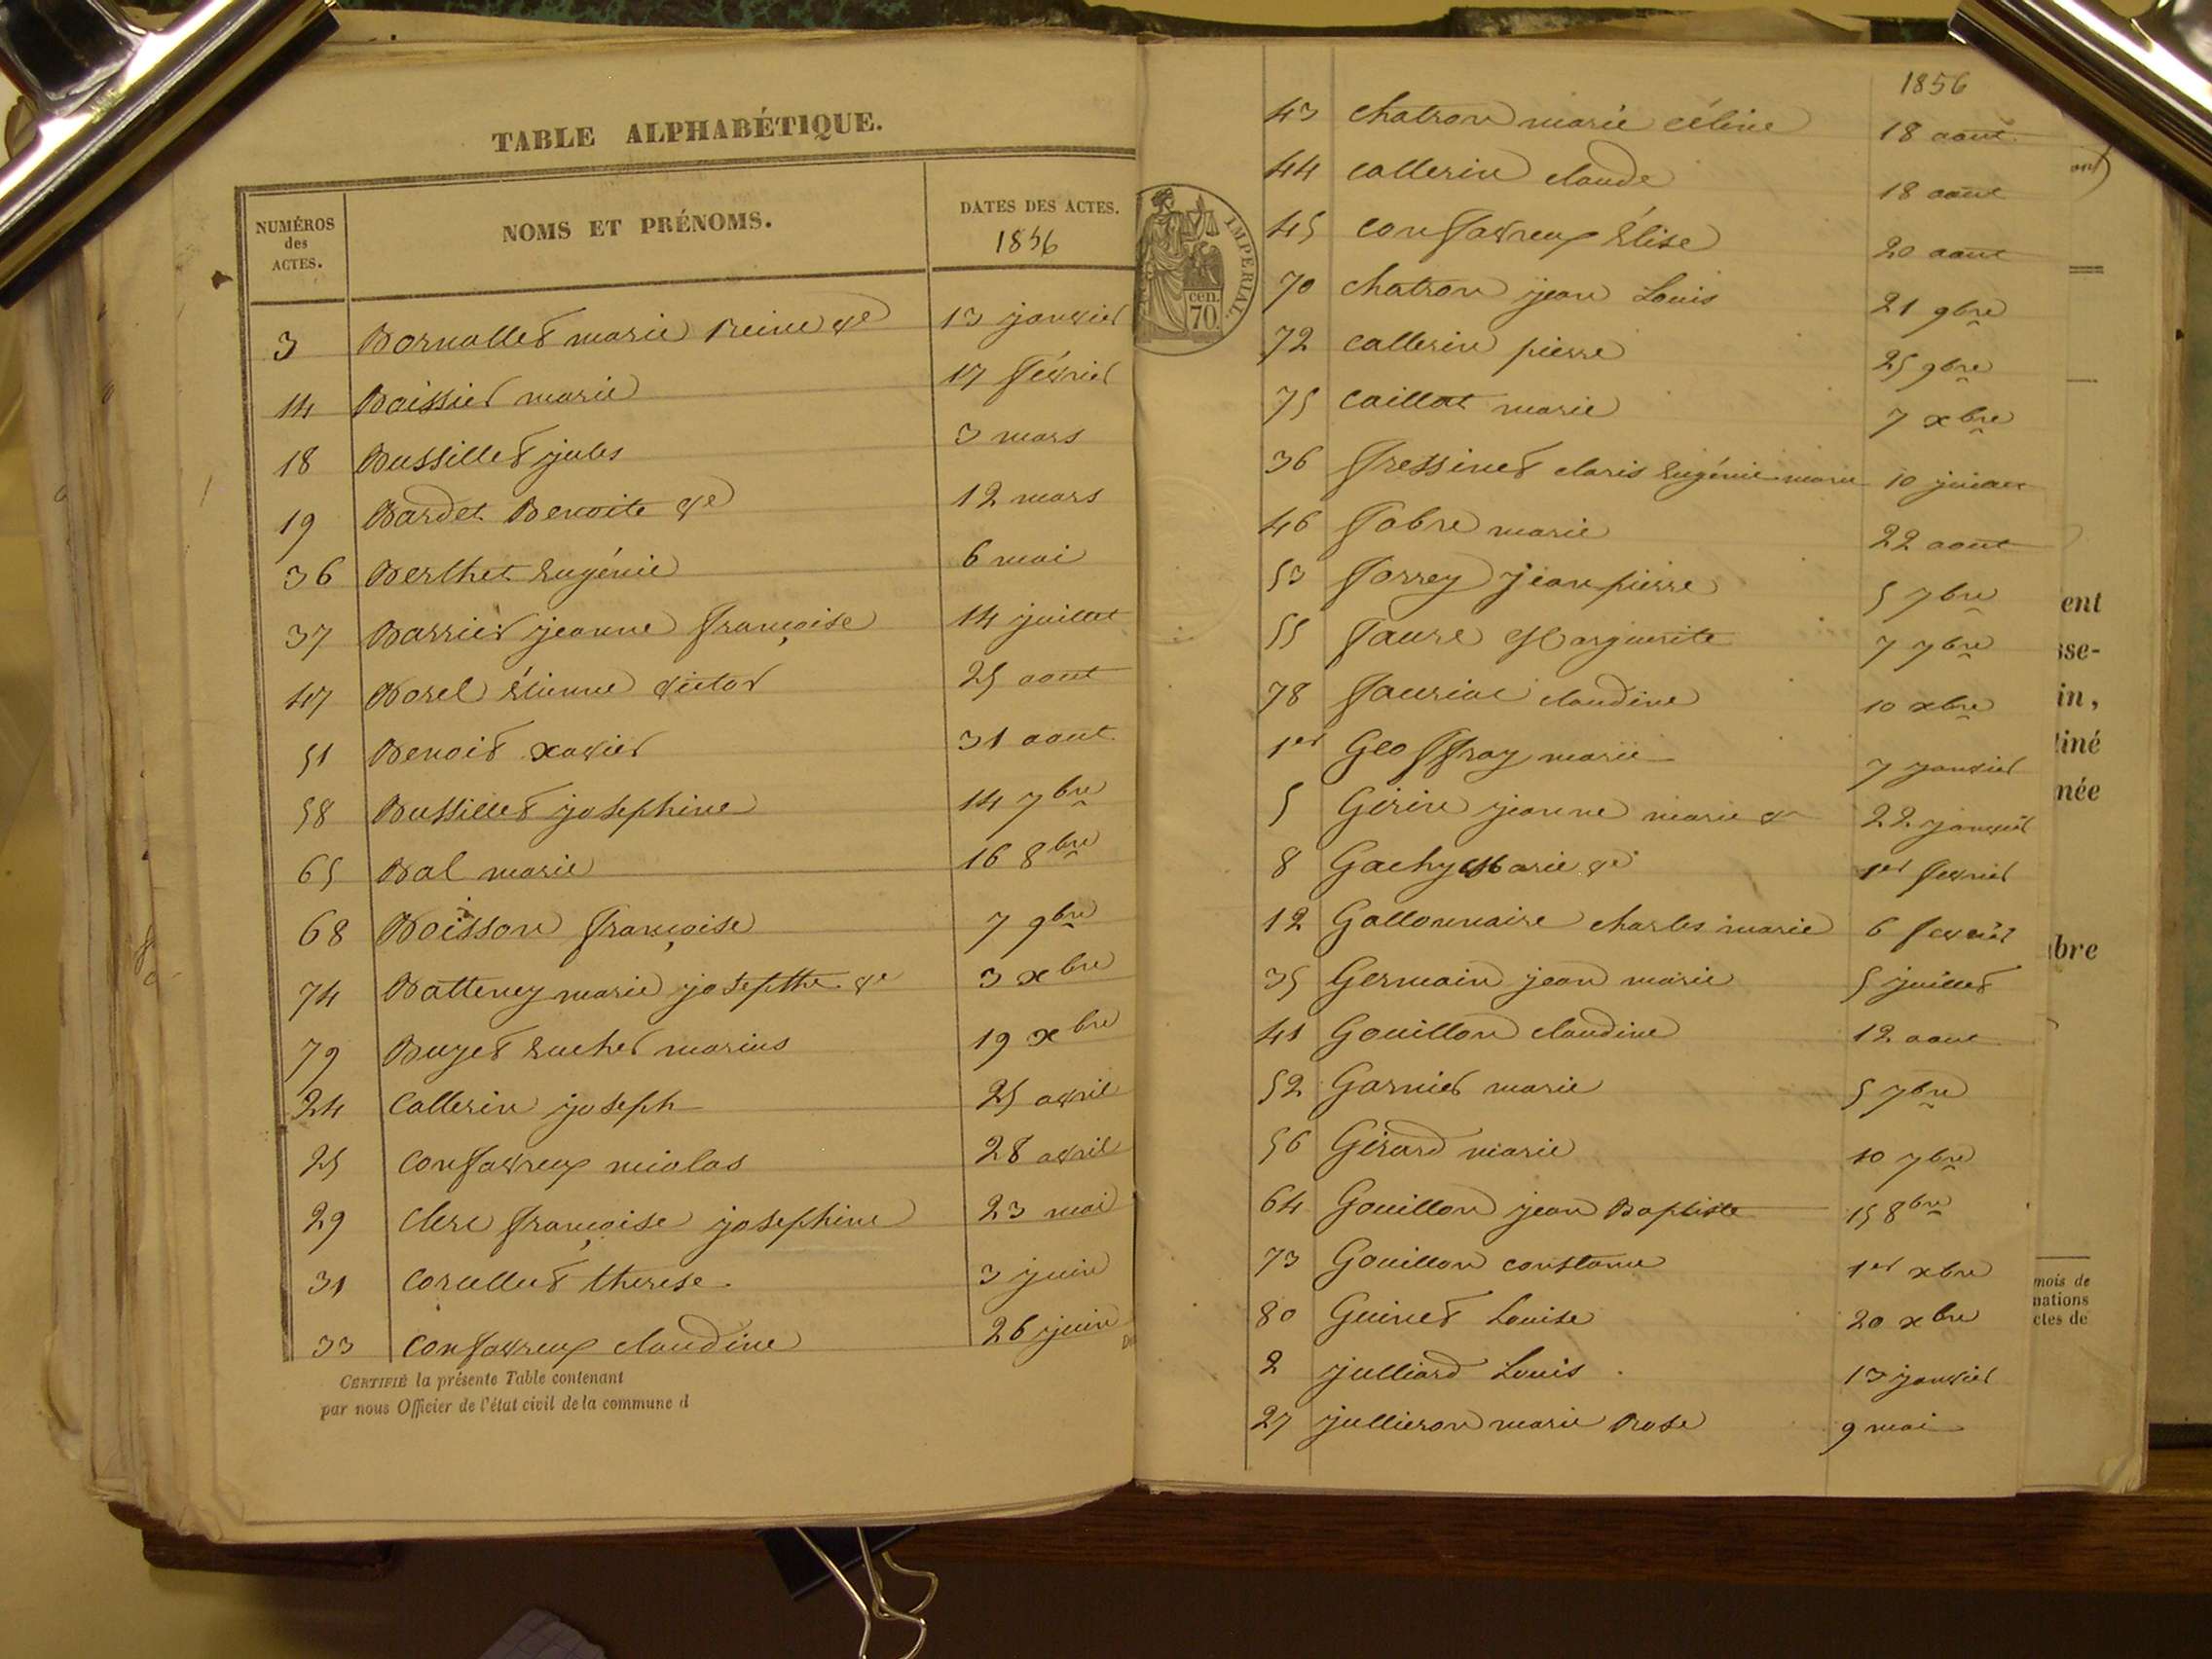 TABLE ALPHABÉTIQUE.
NUMÉROS des ACTES. NOMS ET PRÉNOMS. DATES DES ACTES. 1856
3 Bornallet marie Reine ve 13 janvier
14 Boissier marie 17 février
18 Bussillet jules 3 mars
19 Bardet Benoite ve 12 mars
36 Berthet Eugénie 6 mai
37 Barrier jeanne françoise 14 juillet
47 Borel Étienne victor 25 aout
51 Benoit xavier 31 aout
58 Bussillet josephine 14 7bre
65 Bal marie 16 8bre
68 Boisson françoise 7 9bre
74 Batteney marie josepthe ve 3 xbre
79 Buyet Eucher marius 19 xbre
24 Callerin joseph 25 avril
25 Confavreux nicolas 28 avril
29 Clerc françoise josephine 23 mai
31 Corcellut therese 3 juin
33 Confavreux claudine 26 juin
CERTIFIÉ la présente Table contenant
par nous Officier de l'état civil de la commune d
IMPERIAL.
cen.
70
1856
43 chatron marie céline 18 aout
44 callerin claude 18 aout
45 confavreux Élise 20 aout
70 chatron jean Louis 21 9bre
72 callerin pierre 25 9bre
75 caillat marie 7 xbre
36 fressinet claris Eugénie marie 10 juillet
46 fabre marie 22 aout
53 forrey jean pierre 5 7bre
55 faure Marguerite 7 7bre
78 fauriat claudine 10 xbre
1er Geoffray marie 7 janvier
5 Gérin jeanne marie ve 22 janvier
8 Gachy Marie ve 1er fevrier
12 Gallonnaire charles marie 6 fevrier
35 Germain jean marie 5 juillet
41 Gouillon claudine 12 aout
52 Garnier marie 5 7bre
56 Girard marie 10 7bre
64 Gouillon jean Baptiste 15 8bre
73 Gouillon constance 1er xbre
80 Guinet Louise 20 xbre
2 julliard Louis 13 janvier
27 jullieron marie Rose 9 mai
ent
sse-
in,
tiné
née
bre
mois de
nations
ctes de